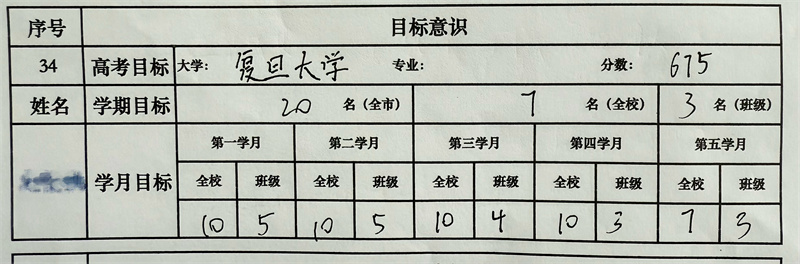 序号 目标意识
34 高考目标 大学: 复旦大学 专业: 分数: 675
姓名 学期目标 20 名(全市) 7 名(全校) 3 名(班级)
学月目标 第一学月 第二学月 第三学月 第四学月 第五学月
全校 班级 全校 班级 全校 班级 全校 班级 全校 班级
10 5 10 5 10 4 10 3 7 3